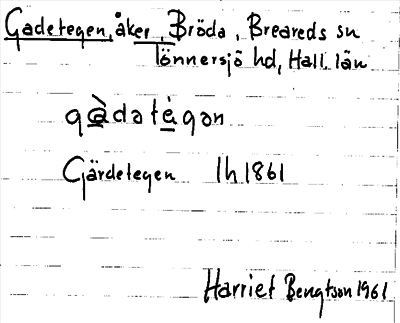 Gadetegen, åker, Bröda, Breareds sn
Tönnersjö hd, Hall. län
gàdatègan
Gärdetegen lh 1861
Harriet Bengtson 1961